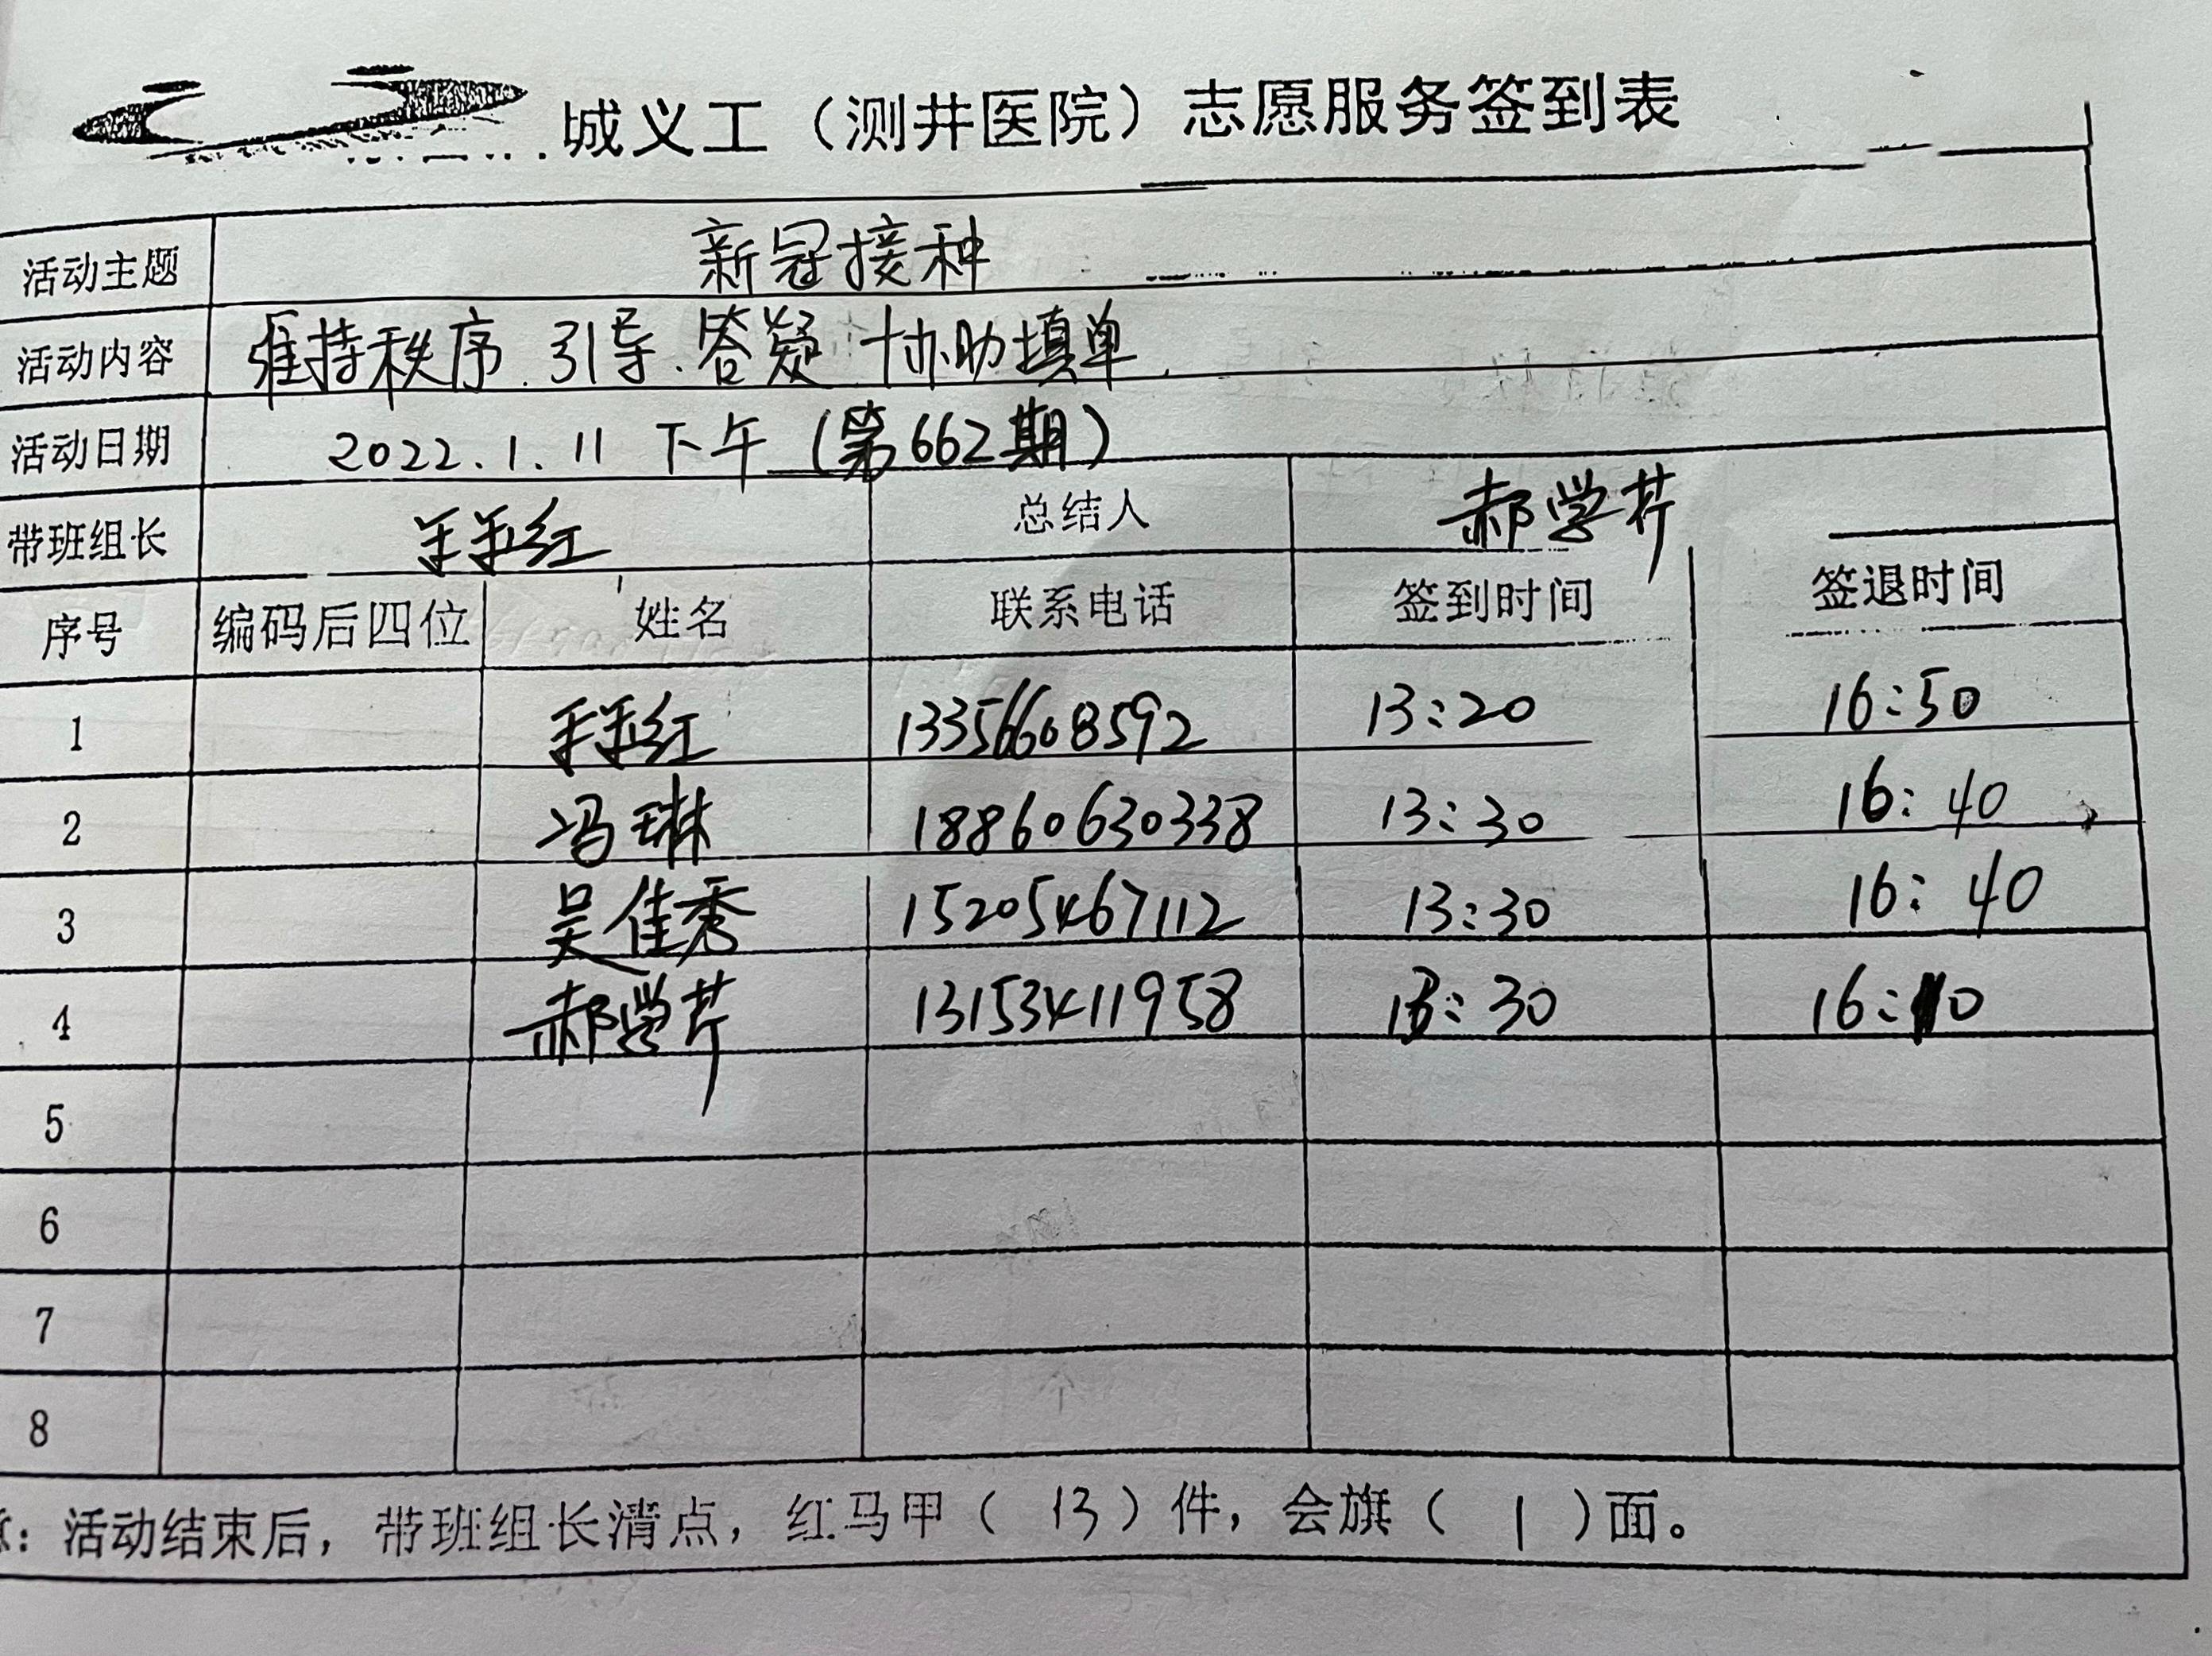 城义工（测井医院）志愿服务签到表
活动主题 新冠接种
活动内容 维持秩序、引导、答疑 协助填单.
活动日期 2022.1.11 下午（第662期）
带班组长 红 总结人 郝学芹
序号 编码后四位 姓名 联系电话 签到时间 签退时间
1 红 13356608592 13:20 16:50
2 冯琳 18860630338 13:30 16:40
3 吴佳秀 15205467112 13:30 16:40
4 郝学芹 13153411958 13:30 16:
5
6
7
8
：活动结束后，带班组长清点，红马甲（13）件，会旗（1）面。